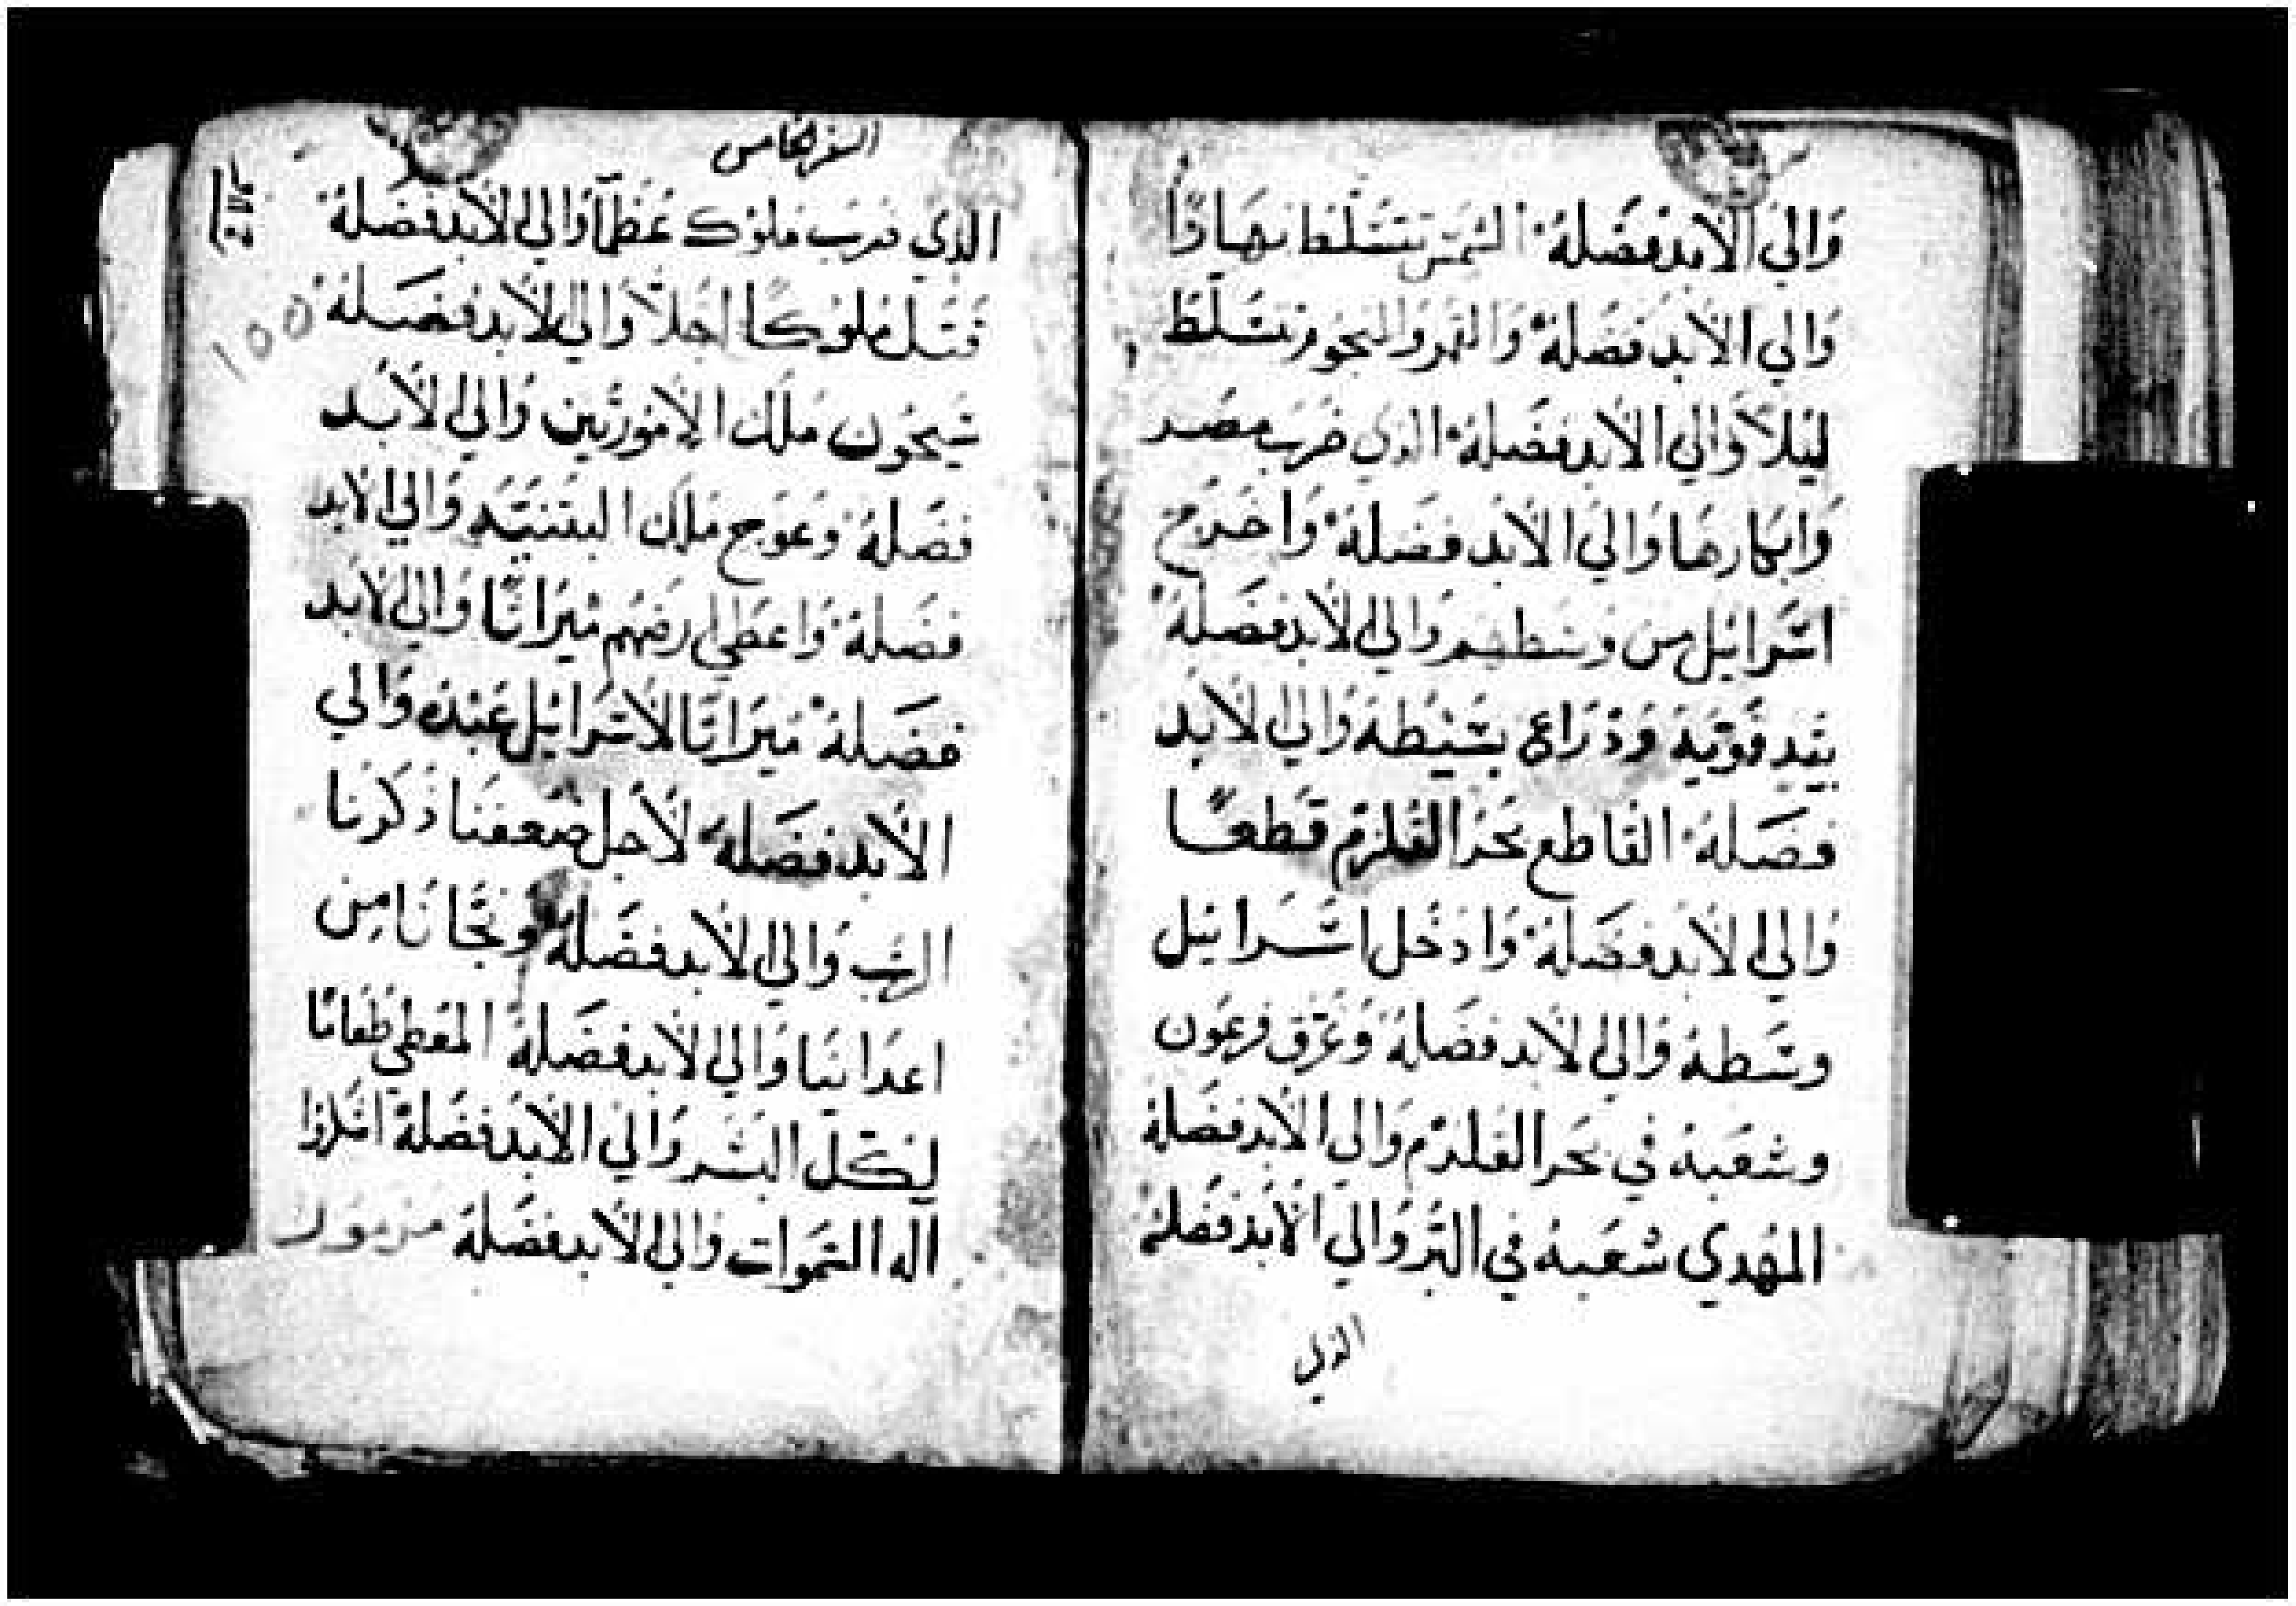 وَالِيَ الاَبَدِ فَضَلهُ ۰ الشمَسَ تتسَلّط نهَارًا
وَالِي الاَبَدِ فَضَلهُ ۰ وَالقمر والنجوم تتسَلّط
ليْلاً وَالِي الاَبَدِ فضَلهُ ۰ الذي ضرَبَ مصَر
وَابكارهَا وَاليَ الاَبَد فضَلهُ ۰ وَاخرَج
اسَرايُل من وسَطهم وَالي الاَبد فضَلهُ ۰
بيَد قَويَه وَذرَاع بسَيْطه وَالي الاَبَد
فضَلهُ ۰ القاطع بَحَر القُلزم قَطعًا
وَالي الاَبَد فضَلهُ ۰ وَادخُل اسَرايُل
وسَطهُ وَالي الاَبد فضَلهُ وَغرّق فرعَون
وشعَبهُ في بحَر القلزم وَالي الاَبَد فضَلهُ
المهُدي شعَبهُ في البَرّ وَالي الاَبَد فضَلهُ
الذي
السفر الخامس
١٥٥
الذي ضرَبَ ملوُك عُظمَآ وَالي الاَبد فضَلهُ ۰
قتَل ملوُكًا اجَلاّ وَالي الاَبد فضَلهُ ۰
سَيحَوُن ملَك الاموُريَين وَالي الاَبَد
فضَلهُ ۰ وعَوج ملَك البتنيَه وَالي الاَبد
فضَلهُ ۰ وَاعطي ارضهُم ميرَاثًا وَالي الاَبد
فضَلهُ ۰ ميرَاثًا لاسَرايُل عَبدهُ وَالي
الاَبد فضَلهُ ۰ لاَجل ضعفنَا ذكرَنا
الرب وَالي الاَبد فضَلهُ ۰ ونجَّانَا من
اعدَاينَا وَالي الاَبد فضَلهُ المعَطي طعَامًا
لكُل البشَر وَالي الاَبد فضَلهُ اشكروا
اله السَموَات وَالي الاَبد فضَلهُ مزموَر